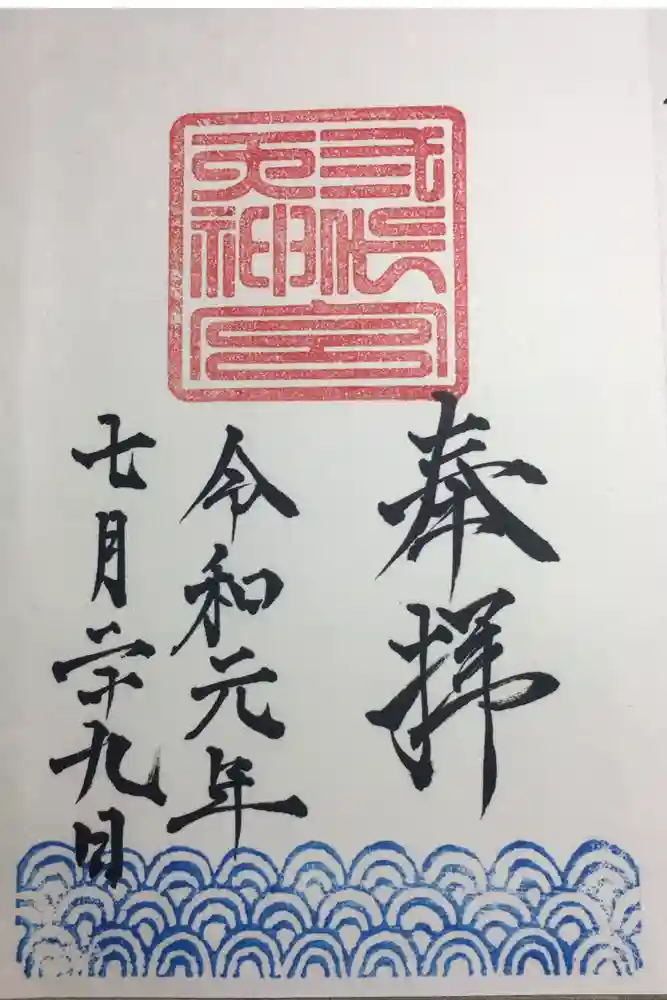 天神
奉拝
令和元年
七月二十九日